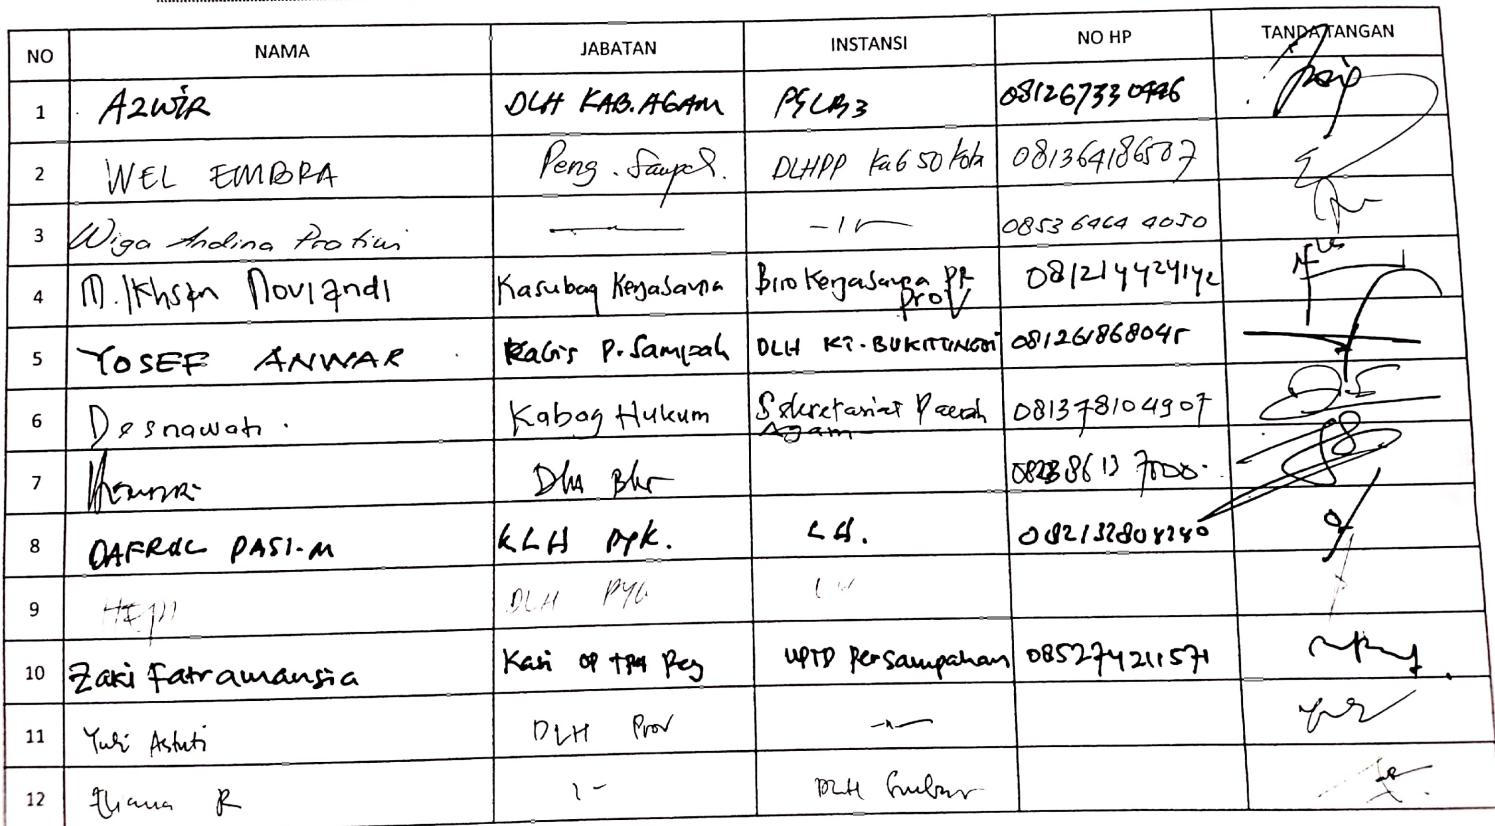 NO NAMA JABATAN INSTANSI NO HP TANDATANGAN
1 AZWIR DLH KAB.AGAM PSLB3 081267330446
2 WEL EMBRA Peng. DLHPP Kab 50 Kota 081364186507
3 Wiga Andina Pratiwi 0853 6464 4050
4 M.Ikhsan Noviandi Kasubag Kerjasama Biro Kerjasama PR 081214424142
Prov
5 YOSEF ANWAR P. Sampah DLH KT. BUKITTINGGI 081261868045
6 Desnawati. Kabag Hukum Sekretariat Daerah 081378104907
Agam
7
8 DAFRUL PASI.M KLH PPK. LH. 082132804240
9 DLH PYK
10 Zaki Fatramansia Kasi OP TPA Reg UPTD Persampahan 085274211571
11 Yuli Astuti DLH Prov
12 R DLH Sumbar